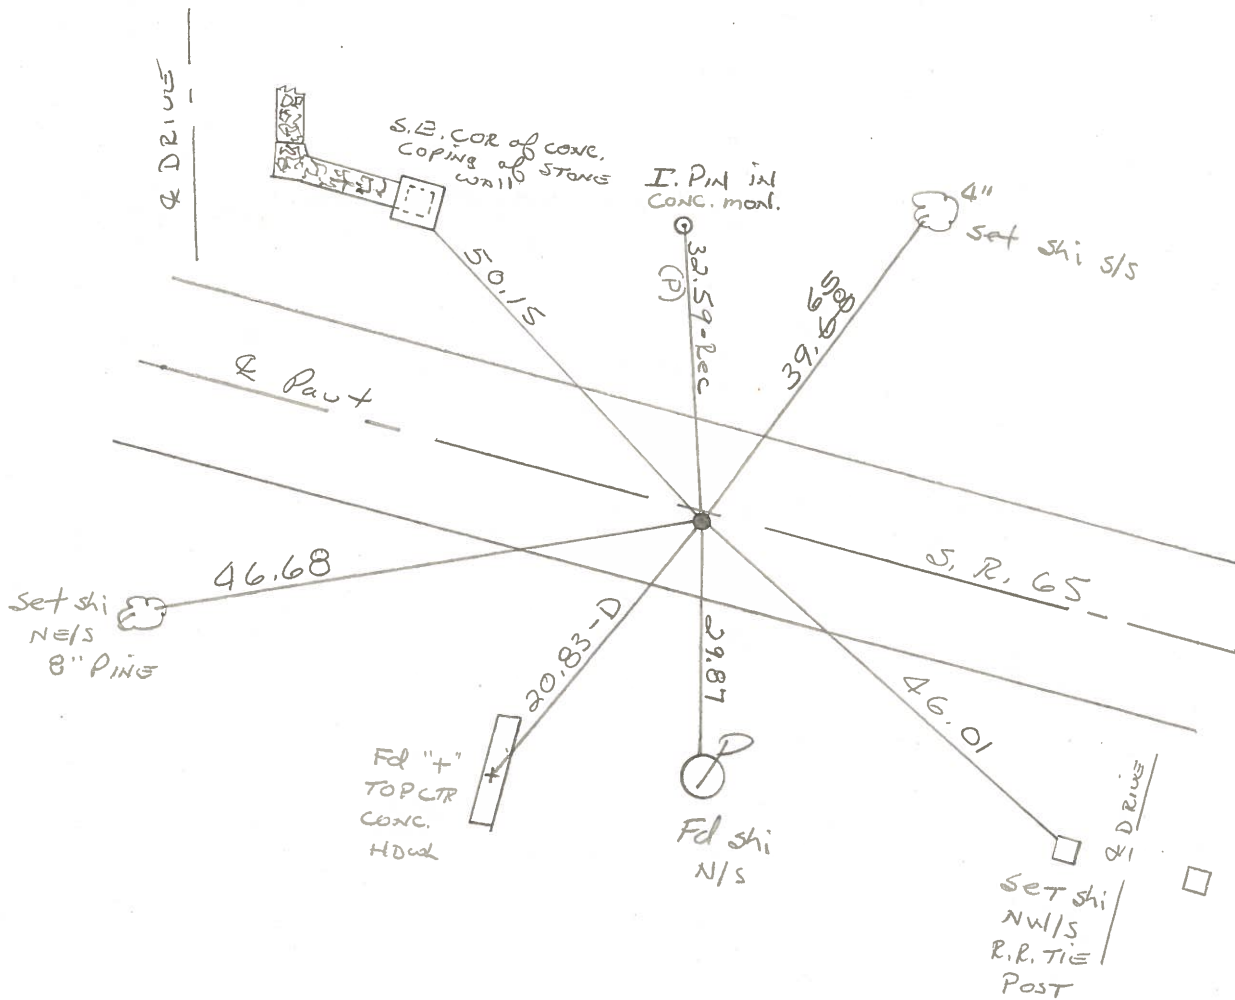 ℄ DRIVE
S.E. COR of CONC.
COPING of STONE
WALL
I. PIN in
CONC. MON.
4"
set shi S/S
50.15
32.59-Rec
(P)
65
39.
℄ Pavt
S. R. 65
46.68
Set shi
NE/S
8" PINE
20.83-D
29.87
46.01
Fd "+"
TOP CTR
CONC.
HDWL
Fd shi
N/S
℄ DRIVE
Set shi
NW/S
R.R. TIE
POST